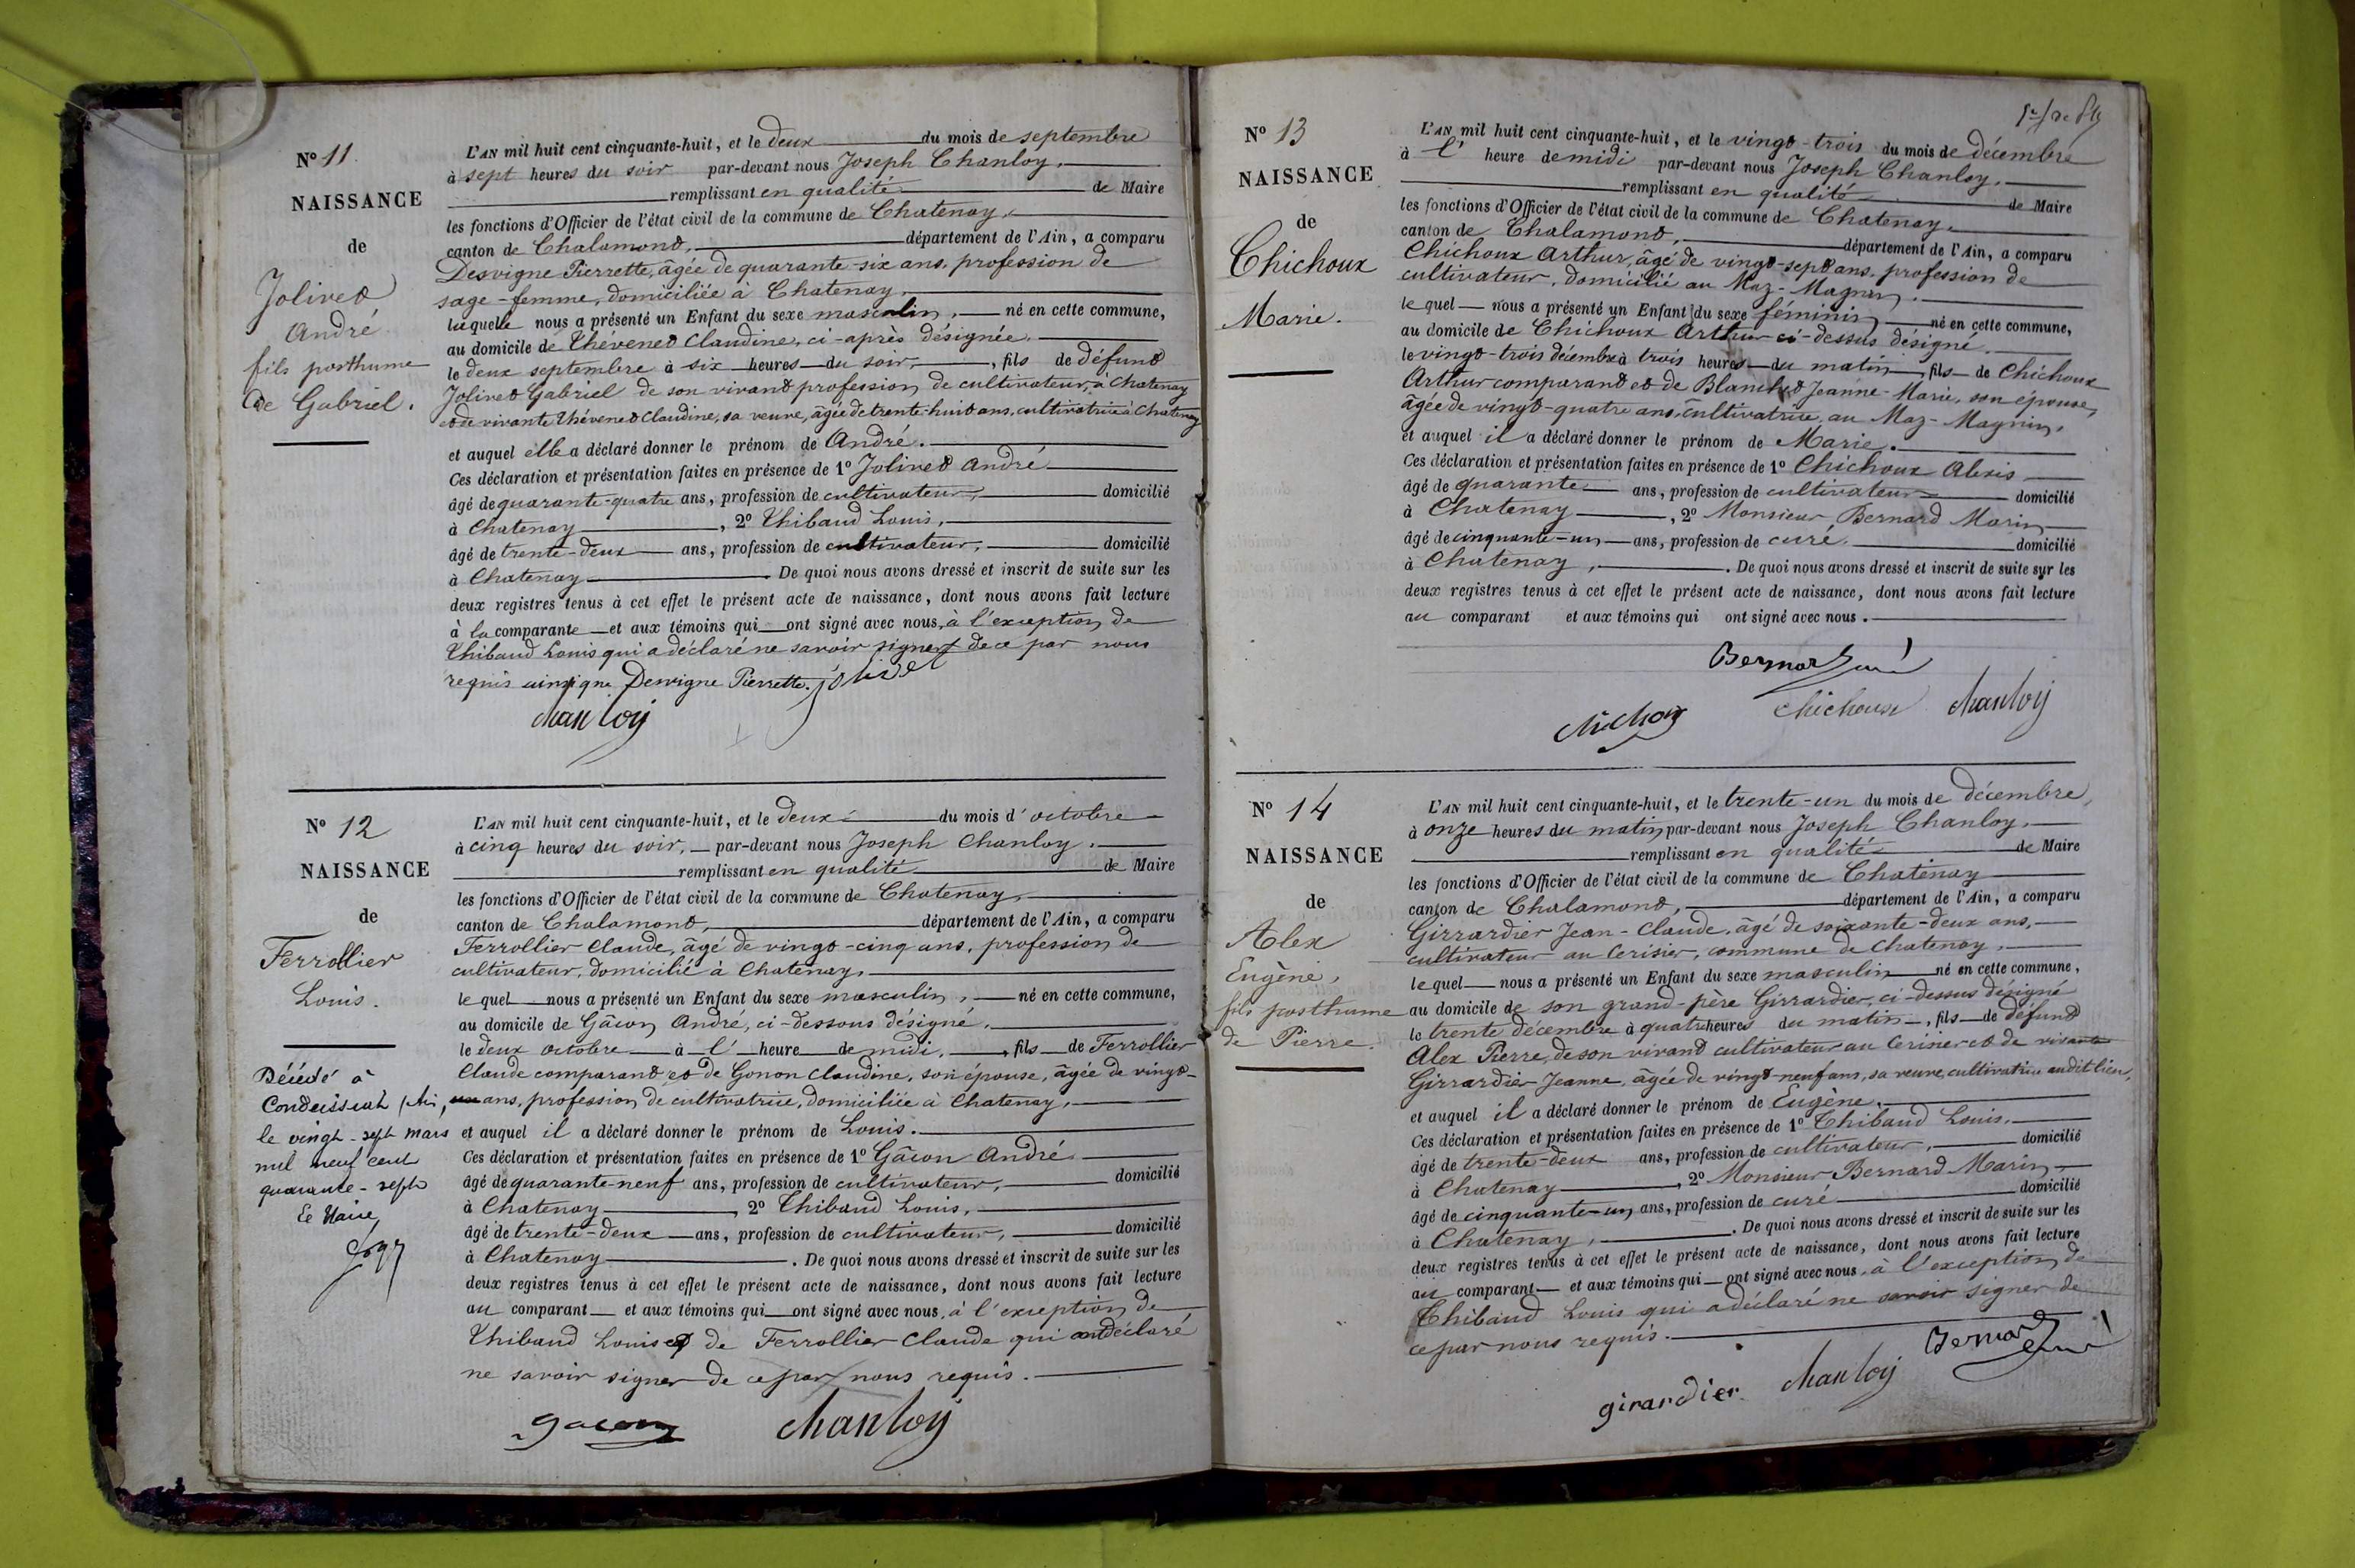 N° 11.
NAISSANCE
de
Jolivet
André
fils posthume
de Gabriel.
L'AN mil huit cent cinquante-huit, et le deux du mois de septembre
à sept heures du soir par-devant nous Joseph Chanloy,
remplissant en qualité de Maire
les fonctions d'Officier de l'état civil de la commune de Chatenay,
canton de Chalamont, département de l'Ain, a comparu
Desvigne Pierrette, âgée de quarante-six ans, profession de
sage-femme, domiciliée à Chatenay,
laquelle nous a présenté un Enfant du sexe masculin, né en cette commune,
au domicile de Thévenet Claudine, ci-après désignée,
le deux septembre à six heures du soir, fils de défunt
Jolivet Gabriel de son vivant profession de cultivateur, à Chatenay
et de vivante Thévenet Claudine, sa veuve, âgée de trente-huit ans, cultivatrice à Chatenay
et auquel elle a déclaré donner le prénom de André.
Ces déclaration et présentation faites en présence de 1° Jolivet André
âgé de quarante-quatre ans, profession de cultivateur, domicilié
à Chatenay, 2° Thibaud Louis,
âgé de trente-deux ans, profession de cultivateur, domicilié
à Chatenay. De quoi nous avons dressé et inscrit de suite sur les
deux registres tenus à cet effet le présent acte de naissance, dont nous avons fait lecture
à la comparante et aux témoins qui ont signé avec nous, à l'exception de
Thibaud Louis qui a déclaré ne savoir signer de ce par nous
requis ainsi que Desvigne Pierrette. jolivet
chanloy
N° 12
NAISSANCE
de
Ferrollier
Louis.
Décédé à
Condeissiat
le vingt-sept mars
mil neuf cent
quarante-sept
Le Maire
L'AN mil huit cent cinquante-huit, et le deux du mois d'octobre
à cinq heures du soir, par-devant nous Joseph Chanloy,
remplissant en qualité de Maire
les fonctions d'Officier de l'état civil de la commune de Chatenay,
canton de Chalamont, département de l'Ain, a comparu
Ferrollier Claude, âgé de vingt-cinq ans, profession de
cultivateur, domicilié à Chatenay,
lequel nous a présenté un Enfant du sexe masculin, né en cette commune,
au domicile de Gâcon André, ci-dessous désigné,
le deux octobre à l'heure de midi, fils de Ferrollier
Claude comparant et de Gonon Claudine, son épouse, âgée de vingt-
un ans, profession de cultivatrice, domiciliée à Chatenay,
et auquel il a déclaré donner le prénom de Louis.
Ces déclaration et présentation faites en présence de 1° Gâcon André
âgé de quarante-neuf ans, profession de cultivateur, domicilié
à Chatenay, 2° Thibaud Louis,
âgé de trente-deux ans, profession de cultivateur, domicilié
à Chatenay. De quoi nous avons dressé et inscrit de suite sur les
deux registres tenus à cet effet le présent acte de naissance, dont nous avons fait lecture
au comparant et aux témoins qui ont signé avec nous, à l'exception de
Thibaud Louis et de Ferrollier Claude qui ont déclaré
ne savoir signer de ce par nous requis.
gacon chanloy
N° 13
NAISSANCE
de
Chichoux
Marie.
L'AN mil huit cent cinquante-huit, et le vingt-trois du mois de décembre
à l'heure de midi par-devant nous Joseph Chanloy,
remplissant en qualité de Maire
les fonctions d'Officier de l'état civil de la commune de Chatenay,
canton de Chalamont, département de l'Ain, a comparu
Chichoux Arthur, âgé de vingt-sept ans, profession de
cultivateur, domicilié au Maz-Magnin,
lequel nous a présenté un Enfant du sexe féminin né en cette commune,
au domicile de Chichoux Arthur ci-dessus désigné
le vingt-trois décembre à trois heures du matin, fils de Chichoux
Arthur comparant et de Blanchet Jeanne-Marie, son épouse,
âgée de vingt-quatre ans, cultivatrice, au Maz-Magnin,
et auquel il a déclaré donner le prénom de Marie.
Ces déclaration et présentation faites en présence de 1° Chichoux Alexis
âgé de quarante ans, profession de cultivateur domicilié
à Chatenay, 2° Monsieur Bernard Marin
âgé de cinquante-un ans, profession de curé domicilié
à Chatenay, . De quoi nous avons dressé et inscrit de suite sur les
deux registres tenus à cet effet le présent acte de naissance, dont nous avons fait lecture
au comparant et aux témoins qui ont signé avec nous.
Bernard curé
chichoux chichoux chanloy
N° 14
NAISSANCE
de
Alex
Eugène,
fils posthume
de Pierre.
L'AN mil huit cent cinquante-huit, et le trente-un du mois de décembre,
à onze heures du matin par-devant nous Joseph Chanloy,
remplissant en qualité de Maire
les fonctions d'Officier de l'état civil de la commune de Chatenay
canton de Chalamont, département de l'Ain, a comparu
Girrardier Jean-Claude, âgé de soixante-deux ans,
cultivateur au Cerisier, commune de Chatenay,
lequel nous a présenté un Enfant du sexe masculin né en cette commune,
au domicile de son grand-père Girrardier, ci-dessus désigné
le trente décembre à quatre heures du matin, fils de défunt
Alex Pierre, de son vivant cultivateur au Cerisier et de vivante
Girrardier Jeanne, âgée de vingt-neuf ans, sa veuve, cultivatrice audit lieu,
et auquel il a déclaré donner le prénom de Eugène.
Ces déclaration et présentation faites en présence de 1° Thibaud Louis,
âgé de trente-deux ans, profession de cultivateur, domicilié
à Chatenay, 2° Monsieur Bernard Marin
âgé de cinquante-un ans, profession de curé domicilié
à Chatenay, . De quoi nous avons dressé et inscrit de suite sur les
deux registres tenus à cet effet le présent acte de naissance, dont nous avons fait lecture
au comparant et aux témoins qui ont signé avec nous, à l'exception de
Thibaud Louis qui a déclaré ne savoir signer de
ce par nous requis.
girardier chanloy Bernard curé